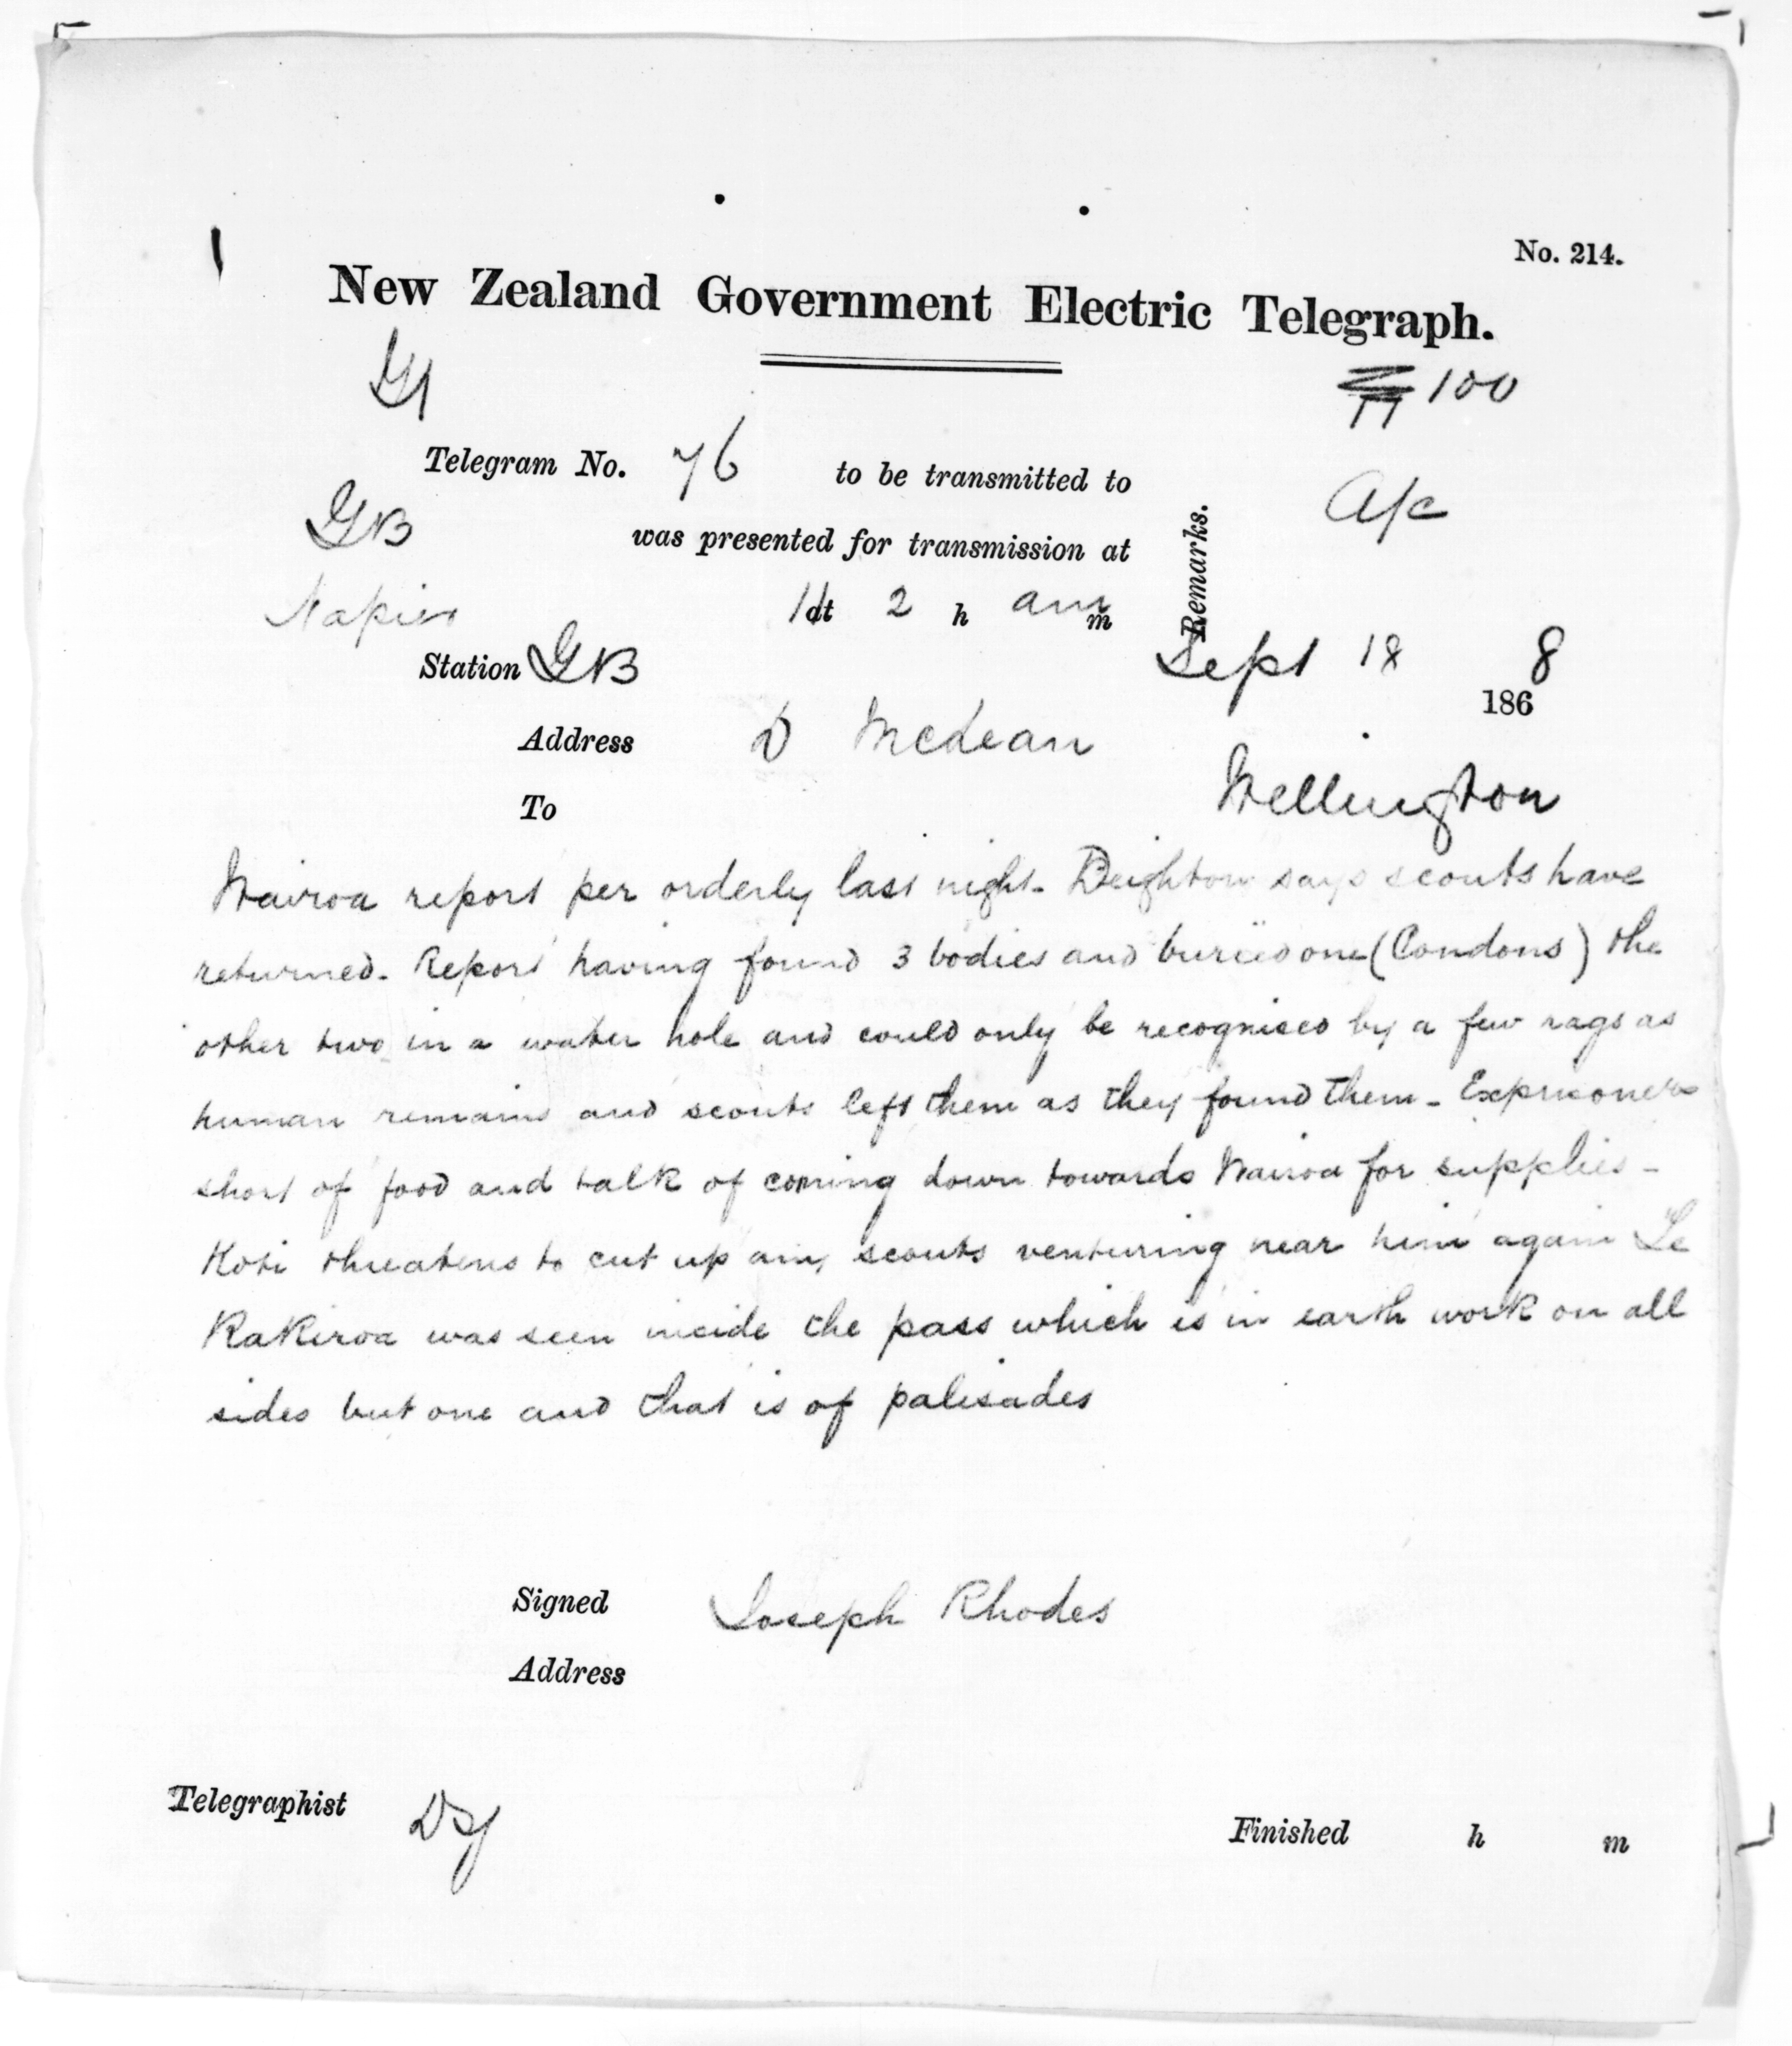 No. 214.
New Zealand Government Electric Telegraph.
100
Telegram No. 76 to be transmitted to
A/c
GB
was presented for transmission at
Remarks.
Napier
11 at 2 h am m
Station GB
Sept 18 1868
Address D McLean
To
Wellington
Wairoa report per orderly last night - Deighton says scouts have
returned - Report having found 3 bodies and buried one (Condons) the
other two in a water hole and could only be recognised by a few rags as
human remains and scouts left them as they found them - Exprisoners
short of food and talk of coming down towards Wairoa for supplies -
Koti threatens to cut up any scouts venturing near him again Te
RaKiroa was seen inside the pass which is in earth work on all
sides but one and that is of palisades
Signed Joseph Rhodes
Address
Telegraphist
Finished h m